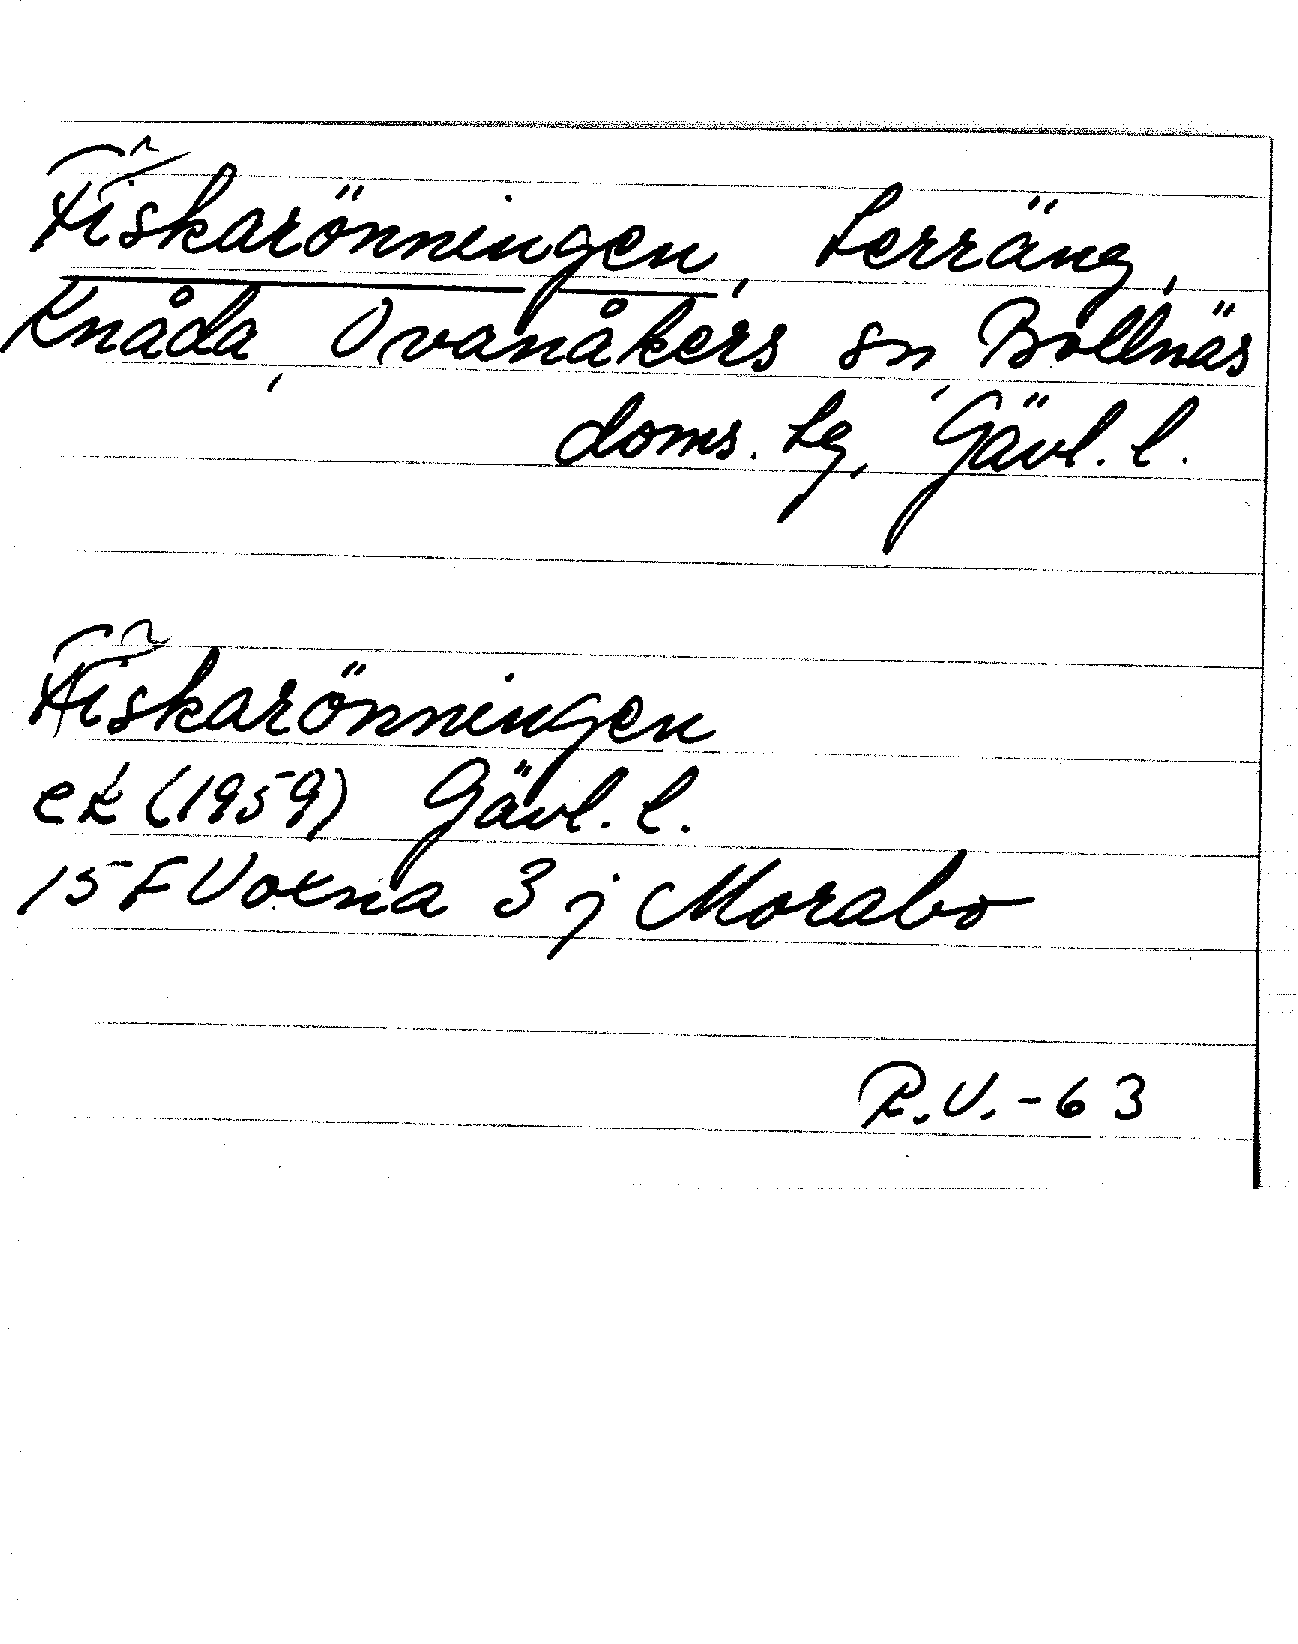 Fiskarönningen, terräng,
Knåda, Ovanåkers sn, Bollnäs
doms. tg, Gävl. l.
Fiskarönningen
ek (1959) Gävl. l.
15 F Voxna 3 j Morabo
R.V.-63